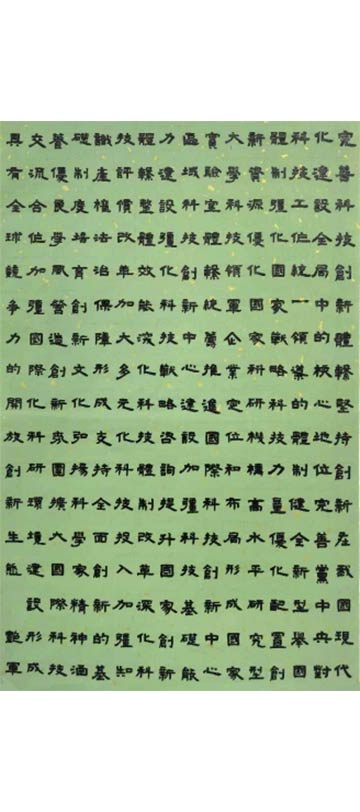 完善科技創新體繫堅持創新在我國現代
化建設全局中的核心地位完善黨中央對
科技工作統一領導的體制健全新型舉國
體制強化國家戰略科技力量優化配置創
新資源優化國家科研機構高水平研究型
大學科技領軍企業定位和布局形成國家
實驗室體繫統籌推進國際科技創新中心
區域科技創新中心建設加強科技基礎能
力建設強化科技戰略咨詢提升國家創新
體繫整體效能深化科技體制改革深化科
技評價改革加大多元化科技投入加強知
識產權法治保障形成支持全面創新的基
礎制度培育創新文化弘揚科學家精神涵
養優良學風營造創新氛圍擴大國際科技
交流合作加強國際化科研環境建設形成
具有全球競爭力的開放創新生態 艷軍